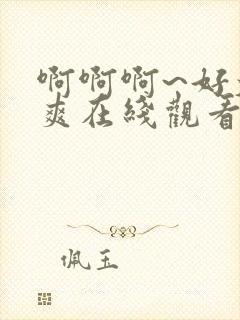 啊啊啊~好
爽在线觀看
佩玉